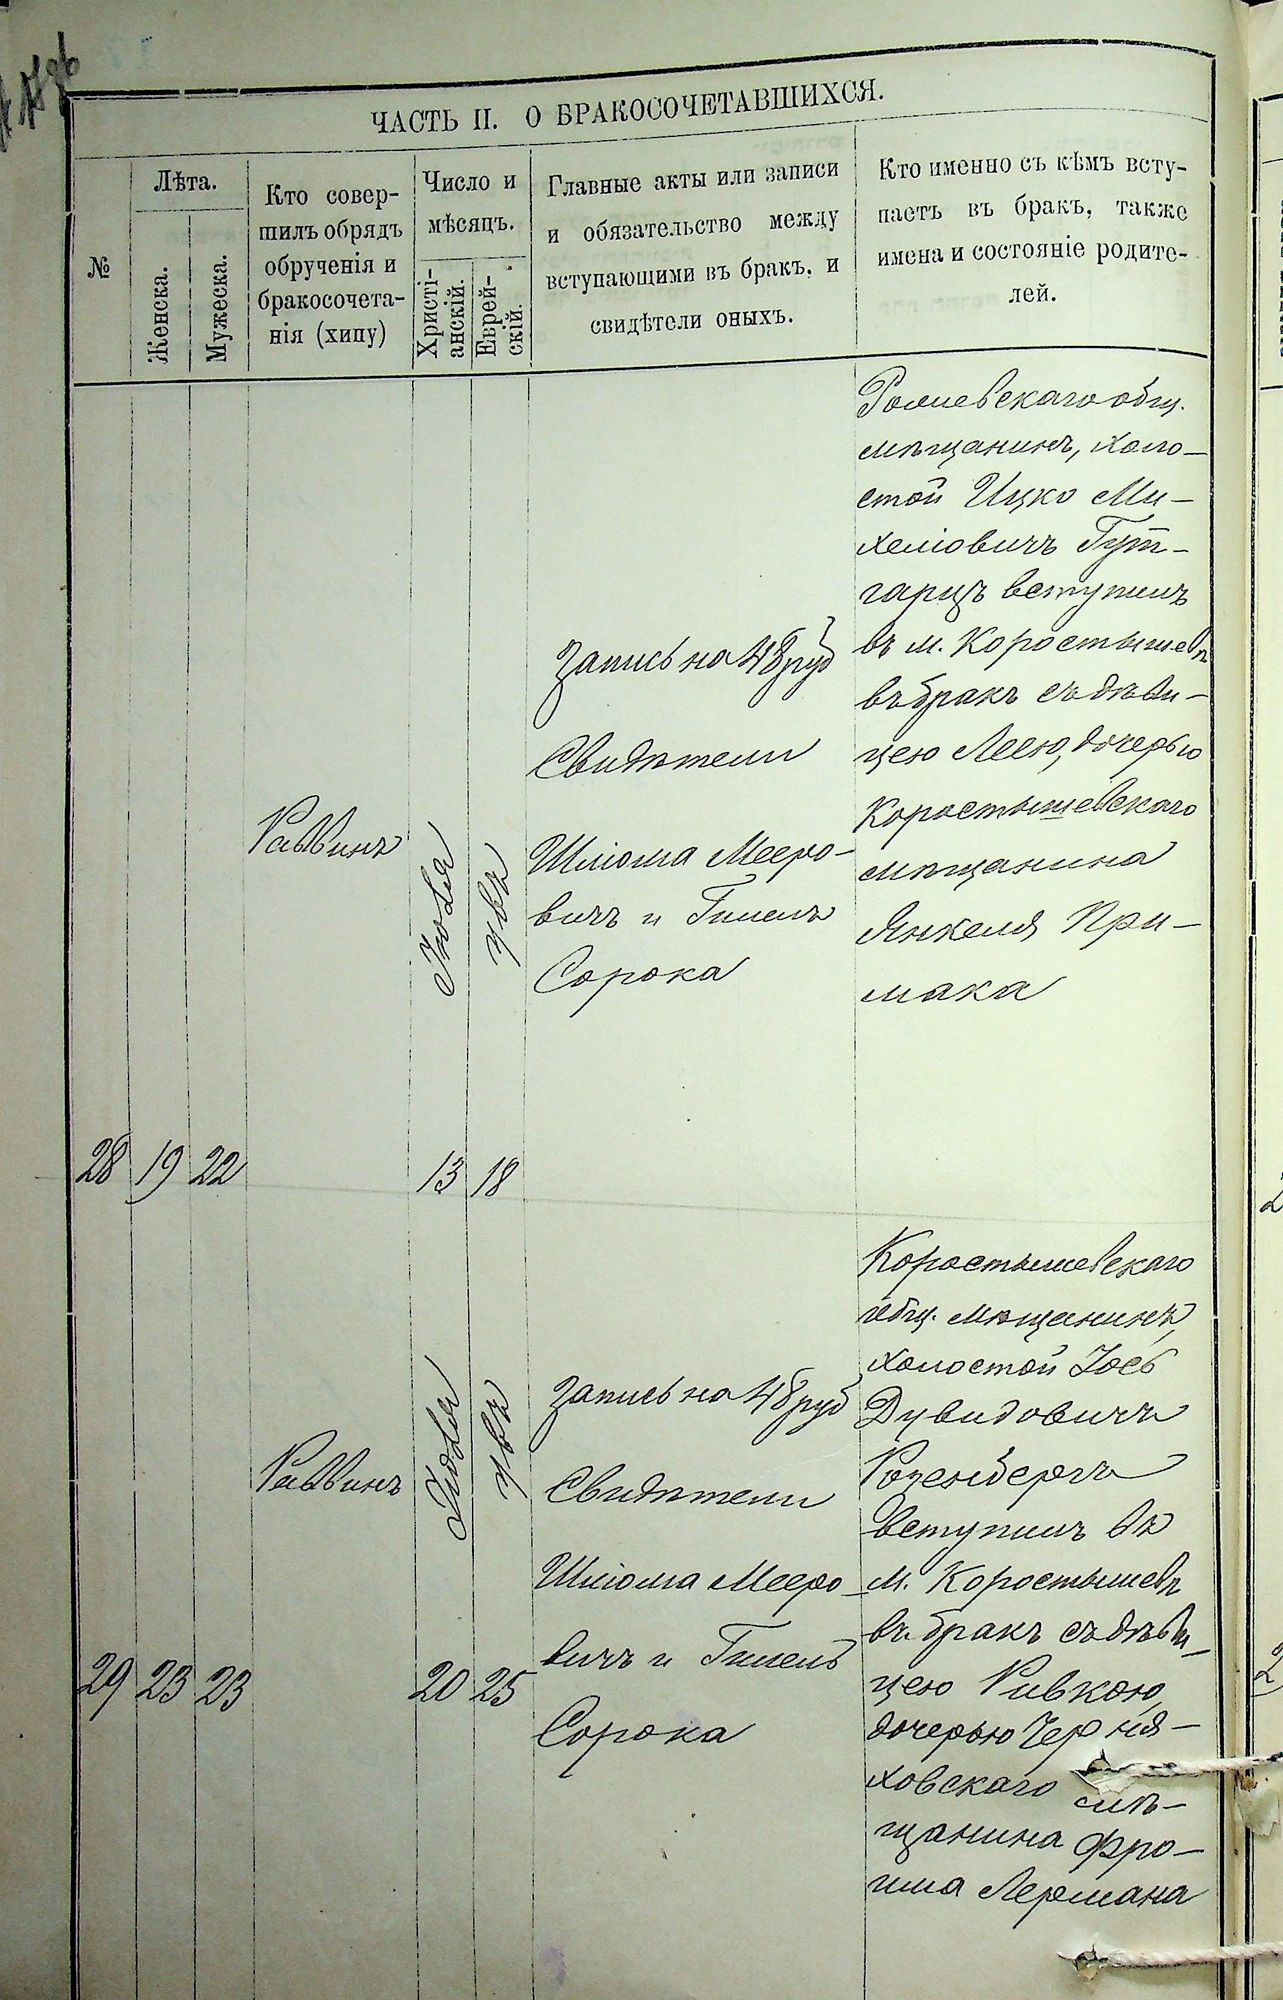 ЧАСТЬ II. О БРАКОСОЧЕТАВШИХСЯ.
№
Лѣта.
Женска.
Мужеска.
Кто совер-
шилъ обрядъ
обрученія и
бракосочета-
нія (хипу)
Число и
мѣсяцъ.
Христі-
анскій.
Еврей-
скій.
Главные акты или записи
и обязательство между
вступающими въ бракъ, и
свидѣтели оныхъ.
Кто именно съ кѣмъ всту-
паетъ въ бракъ, также
имена и состояніе родите-
лей.
28
19
22
Раввинъ
Іюля
13
18
Запись на 48 руб
Свидѣтели
Шліома Мееро-
вичъ и Гилель
Сорока
общ.
мѣщанинъ, холо-
стой Ицко Ми-
хеліовичъ Гут-
гарцъ вступилъ
въ м. Коростышевѣ
въ бракъ съ дѣви-
цею Леею, дочерью
Коростышевскаго
мѣщанина
Янкеля При-
мака
29
23
23
Раввинъ
Іюля
20
25
Запись на 48 руб
Свидѣтели
Шліома Мееро-
вичъ и Гилель
Сорока
Коростышевскаго
общ. мѣщанинъ,
холостой Іось
Дувидовичъ
Розенбергъ
вступилъ въ
м. Коростышевѣ
въ бракъ съ дѣви-
цею Ривкою,
дочерью Черня-
ховскаго мѣ-
щанина Фро-
има Лермана